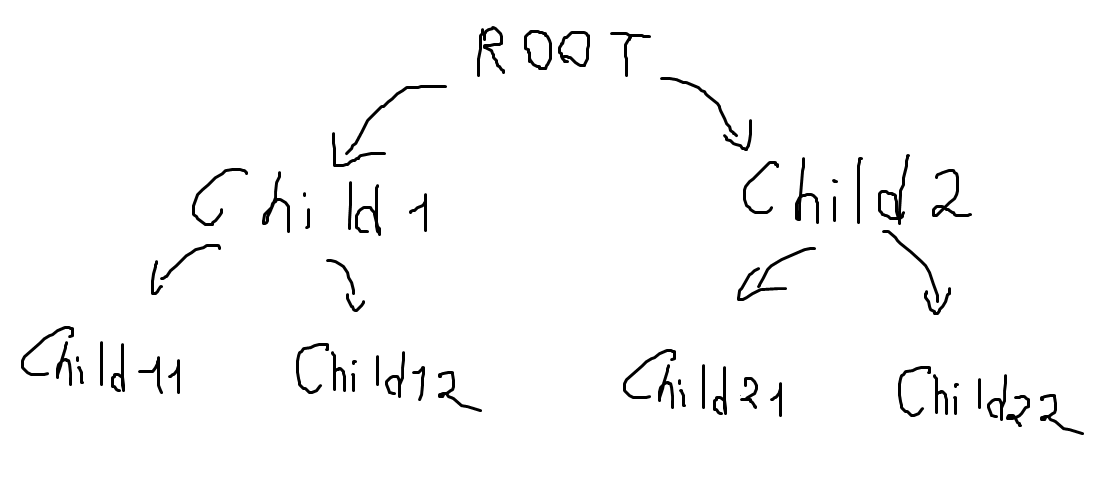 ROOT
Child1 Child2
Child11 Child12 Child21 Child22